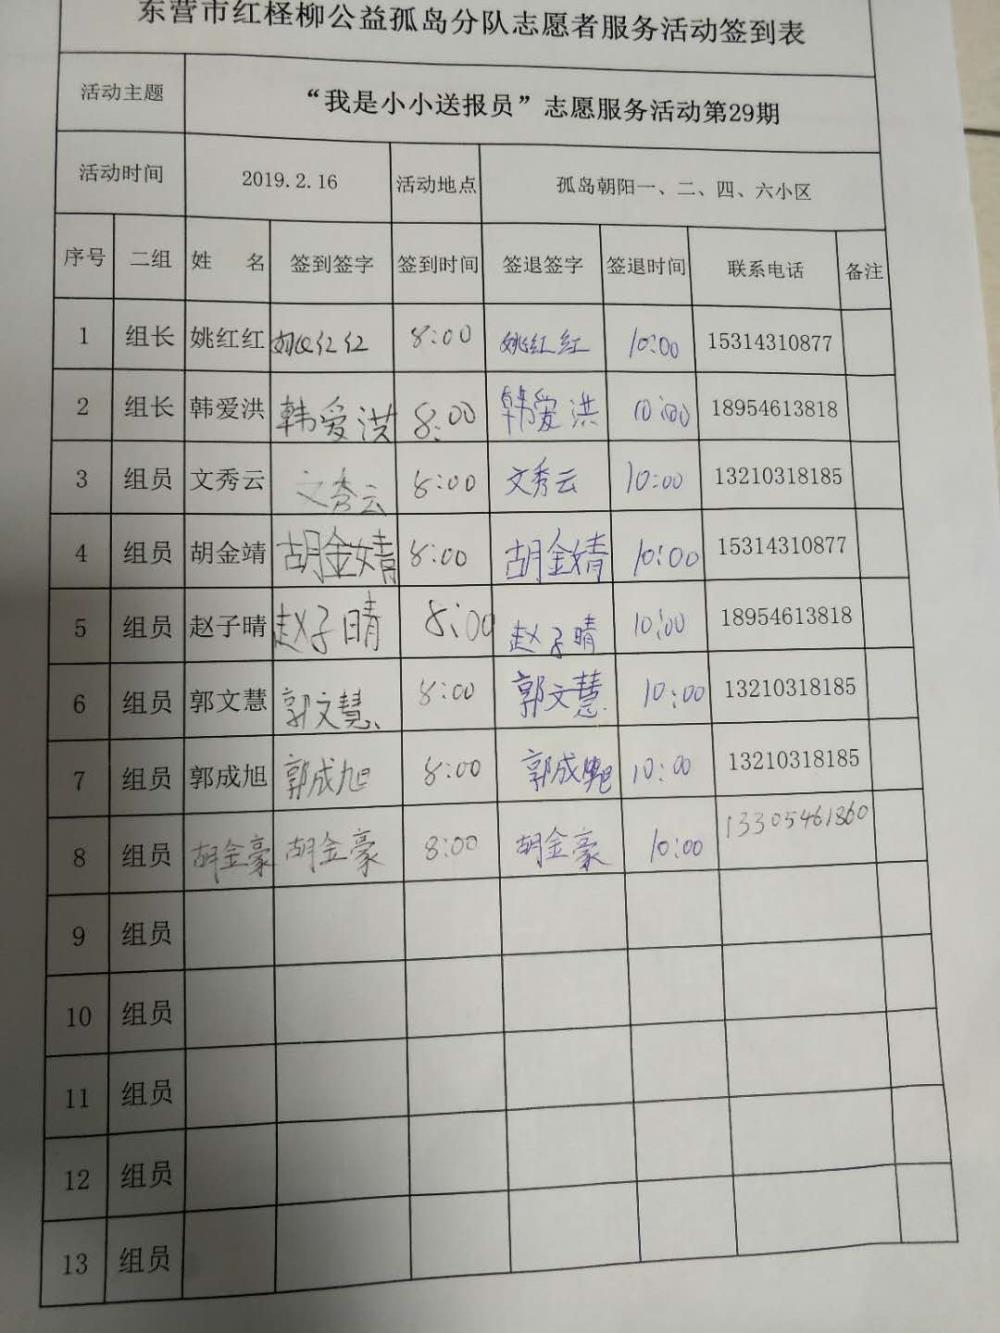 东营市红柽柳公益孤岛分队志愿者服务活动签到表
活动主题 “我是小小送报员”志愿服务活动第29期
活动时间 2019.2.16 活动地点 孤岛朝阳一、二、四、六小区
序号 二组 姓 名 签到签字 签到时间 签退签字 签退时间 联系电话 备注
1 组长 姚红红 姚红红 8:00 姚红红 10:00 15314310877
2 组长 韩爱洪 韩爱洪 8:00 韩爱洪 10:00 18954613818
3 组员 文秀云 文秀云 8:00 文秀云 10:00 13210318185
4 组员 胡金靖 胡金婧 8:00 胡金婧 10:00 15314310877
5 组员 赵子晴 赵子晴 8:00 赵子晴 10:00 18954613818
6 组员 郭文慧 郭文慧 8:00 郭文慧 10:00 13210318185
7 组员 郭成旭 郭成旭 8:00 郭成旭 10:00 13210318185
8 组员 胡金豪 胡金豪 8:00 胡金豪 10:00 13305461860
9 组员
10 组员
11 组员
12 组员
13 组员